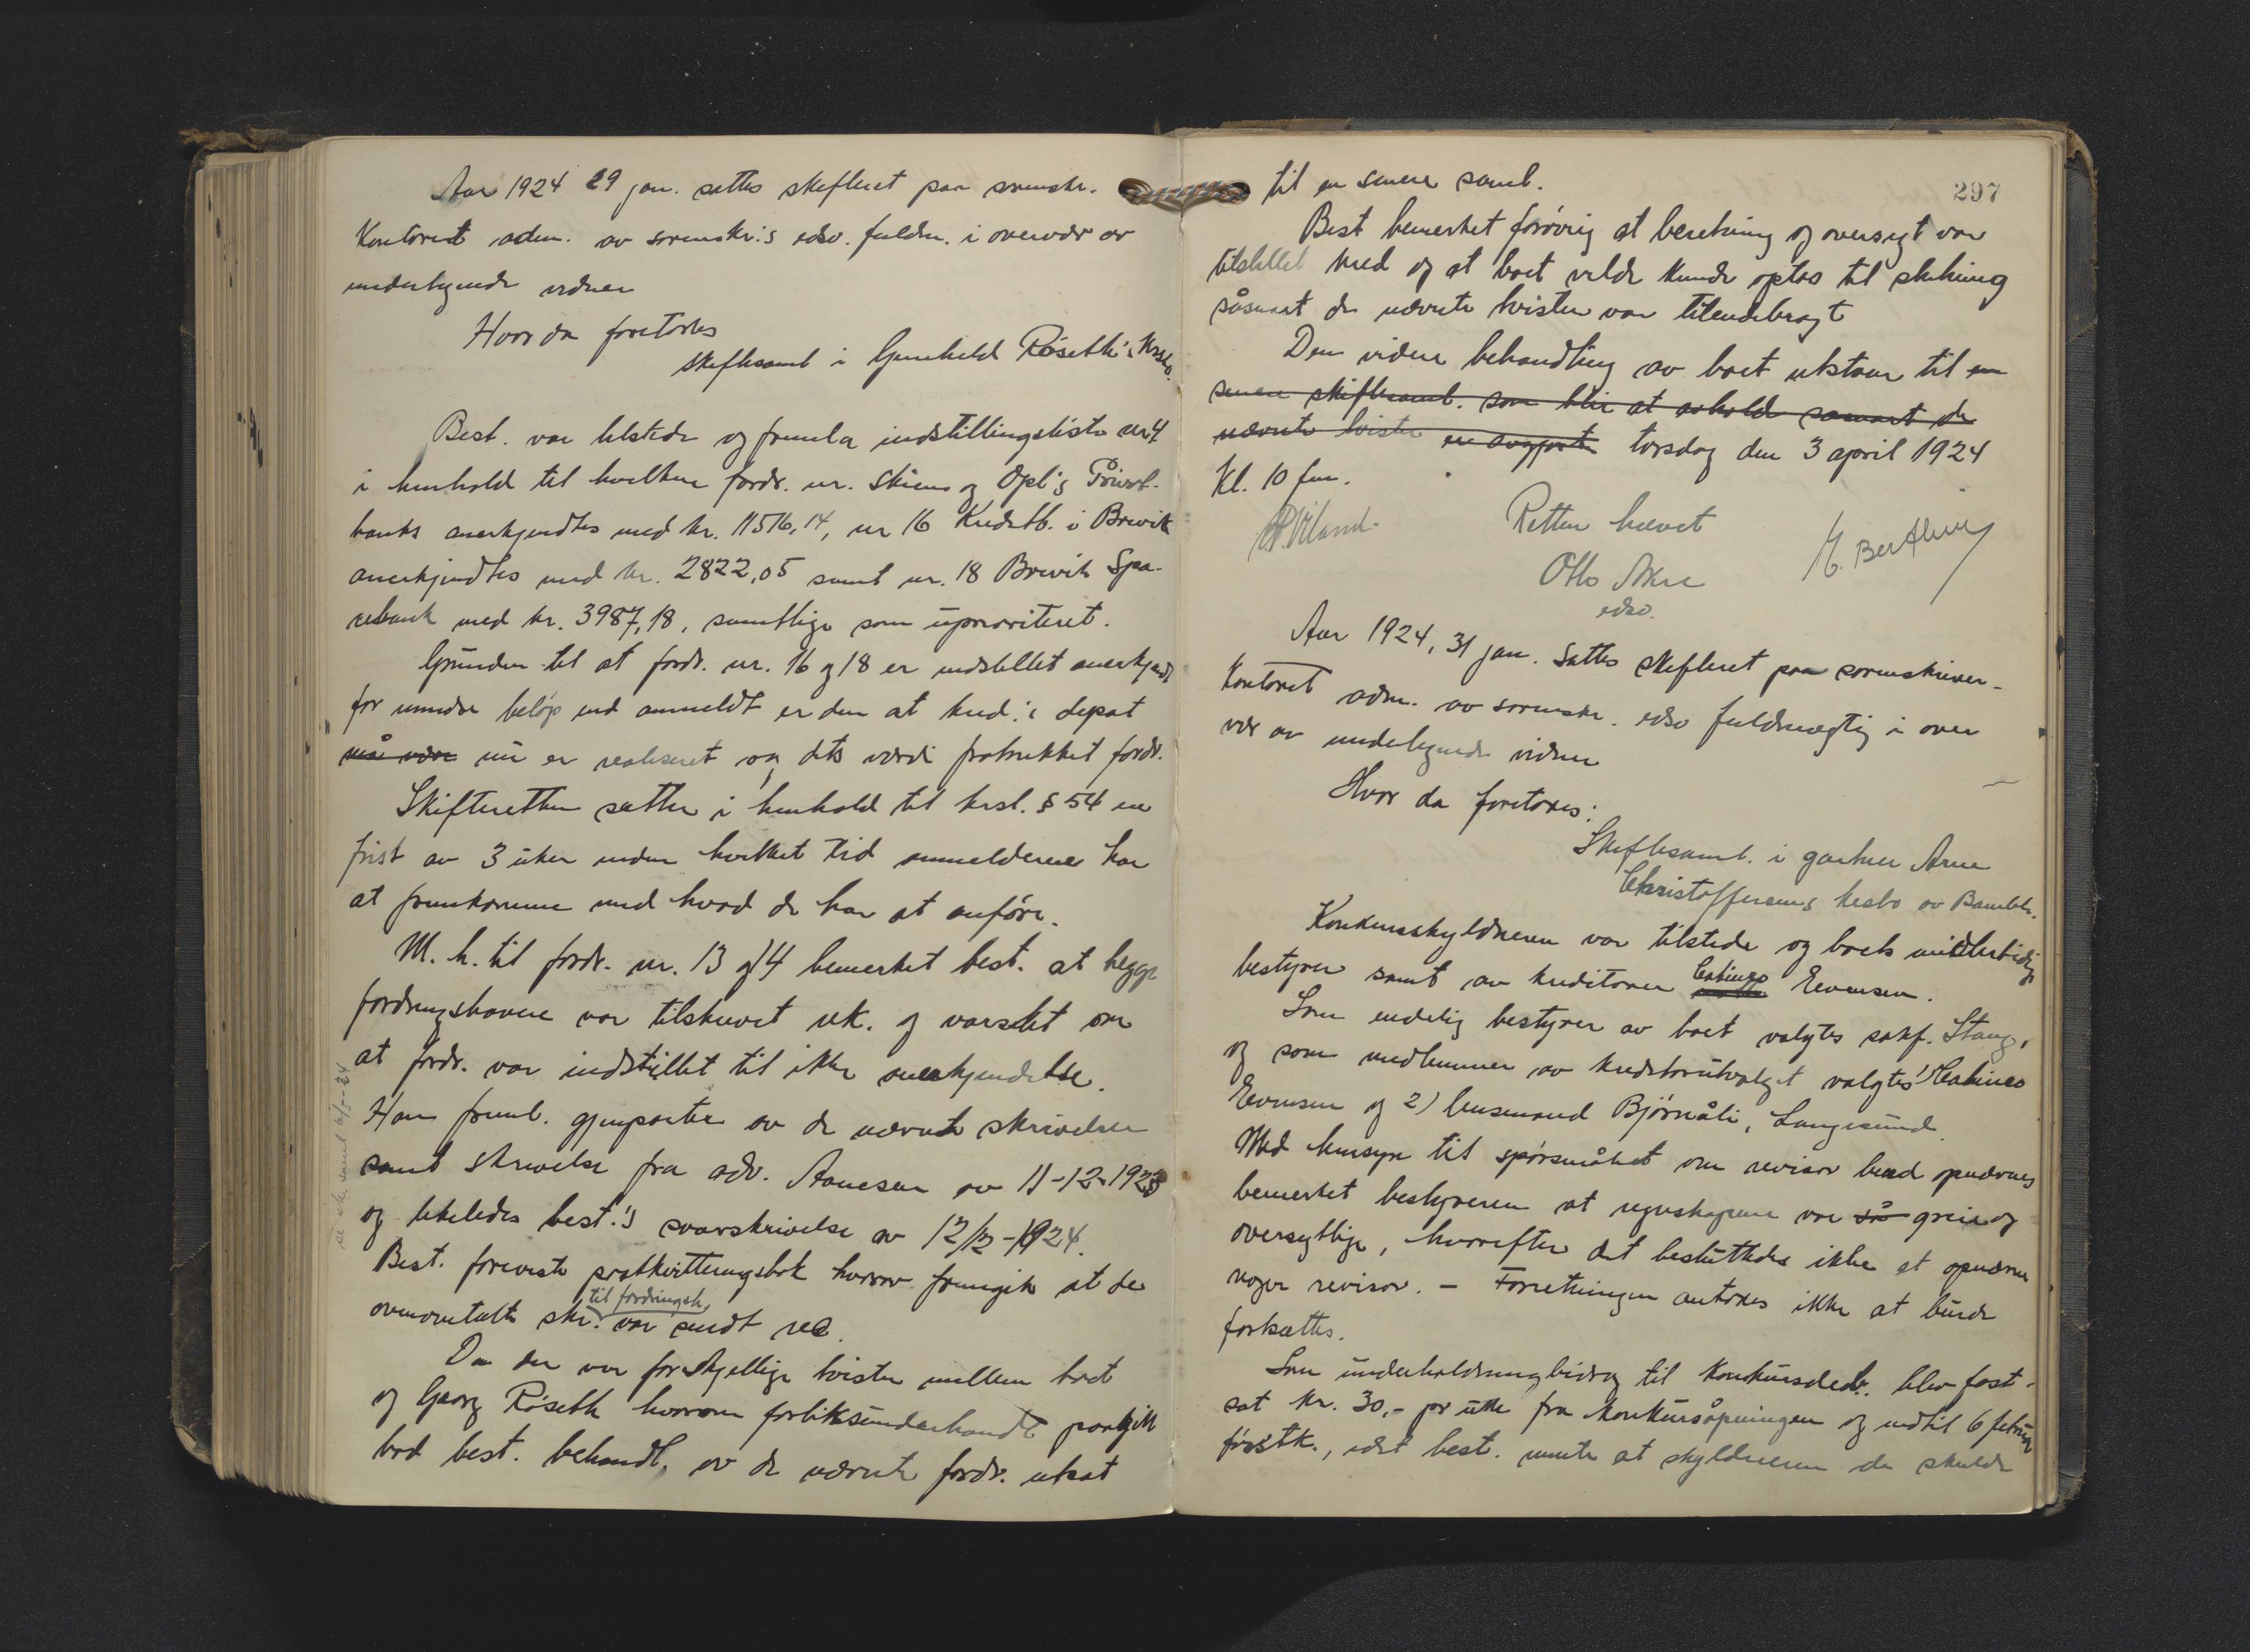 Aar 1924 29 jan. sattes skifteret paa sorenskr.
Kontoret adm. av sorenskr.'s edsv. fuldm. i overvær av
undertegnede vidner
Hvor da foretokes
skiftesaml i Gunhild Röseth's
Best. var tilstede og fremla indstillingsliste nr 4
i henhold til hvilken fordr. nr. Skiens og Opl's Privat-
banks anerkjendtes med kr. 11516,14, nr 16 Kreditb. i Brevik
anerkjendtes med kr. 2822,05 samt nr. 18 Brevik Spa-
rebank med kr. 3987,18, samtlige som uprioriteret.
Grunden til at fordr. nr. 16 og 18 er indstillet anerkjendt
for mindre beløp end anmeldt er den at kred.'s depot
må være nu er realiseret og dets værdi fratrukket fordr.
Skifteretten sætter i henhold til krsl. § 54 en
frist av 3 uker inden hvilket tid anmelderne har
at fremkomme med hvad de har at anføre.
M. h. til fordr. nr. 13 og 14 bemerket best. at begge
fordringshavere var tilskrevet rek. og varslet om
at fordr. var indstillet til ikke anerkjendelse.
Han freml. gjenparter av de nævnte skrivelser
samt skrivelse fra adv. Aanesen av 11-12-1923
og likeledes best.'s svarskrivelse av 12/12-1924.
Best. foreviste postkvitteringsbok hvorav fremgik at de
ovenomtalte skr. til fordringsh. var sendt rec.
Da der var forskjellige tvister mellem boet
og Georg Röseth hvorom forliksunderhandl paagik
bad best. behandl. av de nævnte fordr. utsat
297
til en senere saml.
Best bemerket forøvrig at beretning og oversigt var
utstillet med og at boet vilde kunde optas til slutning
såsnart de nævnte tvister var tilendebragt
Den videre behandling av boet utstaar til en
senere skiftesaml. som blir at avholde saasnart de
nævnte tvister er avgjorte torsdag den 3 april 1924
Kl. 10 fm.
Retten hævet
Otto Aker
edsv.
Aar 1924, 31 jan. sattes skifteret paa sorenskriver-
kontoret adm. av sorenskr. edsv fuldmægtig i over
vær av undertegnede vidner
Hvor da foretokes:
Skiftesaml. i gartner Arne
Christoffersens krsbo av Bamble.
Konkursskyldneren var tilstede og boets midlertidige
bestyrer samt av kreditorer Evensen.
Som endelig bestyrer av boet valgtes sakf. Stang,
og som medlemmer av kreditorutvalget valgtes 1)
Evensen og 2) Bjørnåli, Langesund.
Med hensyn til spørsmålet om revisor burde opnævnes
bemerket bestyreren at regnskapene var så greie og
oversigtlige, hvorefter det besluttedes ikke at opnævne
nogen revisor. — Forretningen antokes ikke at burde
fortsættes.
Som underholdningsbidrag til konkursdeb. blev fast-
sat kr. 30,- pr uke fra konkursåpningen og indtil 6 februar
førstk., idet best. mente at skyldneren da skulde